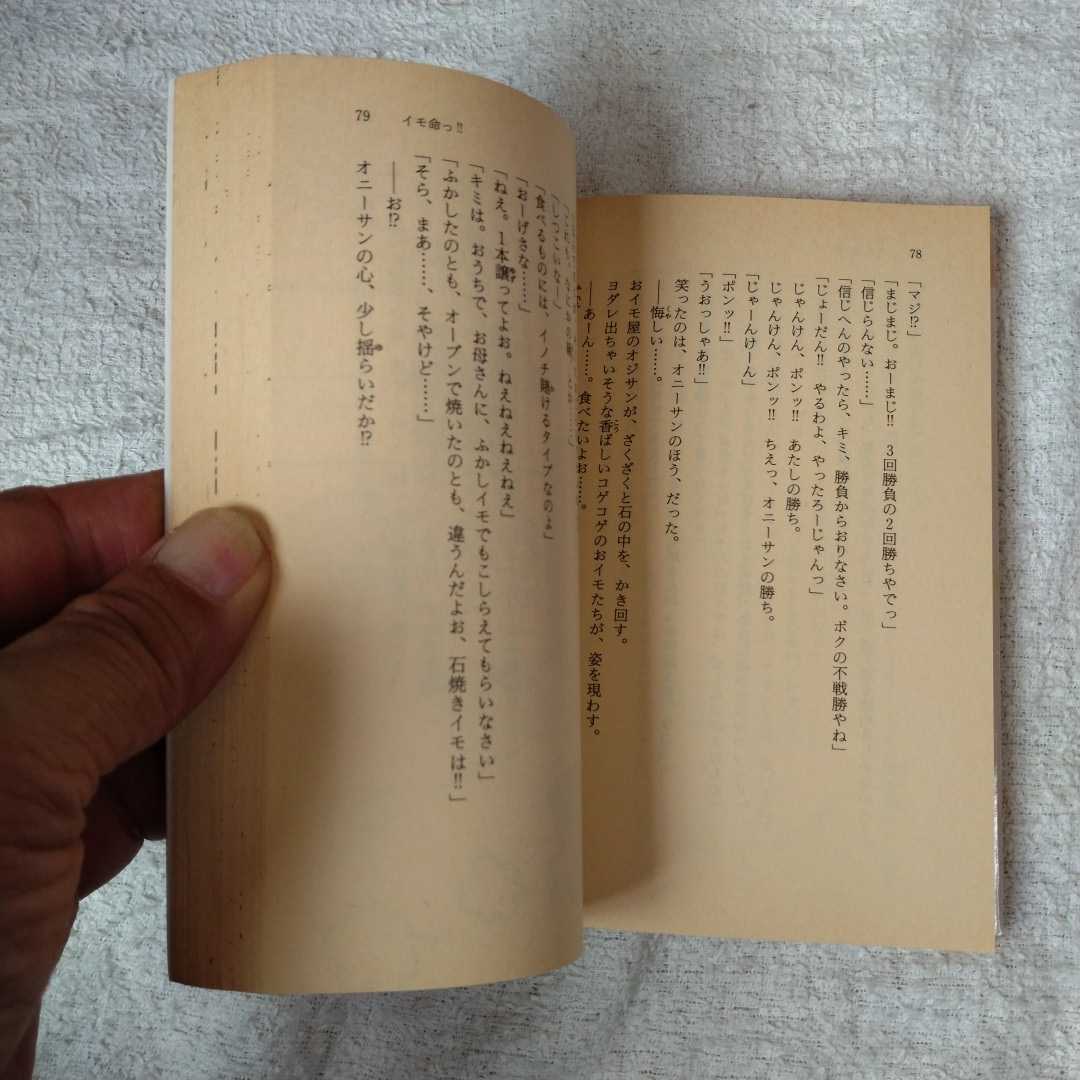 78
「マジ!?」
「まじまじ。おーまじ!! 3回勝負の2回勝ちやでっ」
「信じらんない……」
「信じへんのやったら、キミ、勝負からおりなさい。ボクの不戦勝やね」
「じょーだん!! やるわよ、やったろーじゃんっ」
じゃんけん、ポンッ!! あたしの勝ち。
じゃんけん、ポンッ!! ちえっ、オニーサンの勝ち。
「じゃーんけーん」
「ポンッ!!」
「うおっしゃあ!!」
笑ったのは、オニーサンのほう、だった。
――悔しい……。
おイモ屋のオジサンが、ざくざくと石の中を、かき回す。
ヨダレ出ちゃいそうな香ばしいコゲコゲのおイモたちが、姿を現わす。
――あーん……。食べたいよお……。
79 イモ命っ!!
「しつこいなー」
「食べるものには、イノチ賭けるタイプなのよ」
「おーげさな……」
「ねえ。1本譲ってよお。ねえねえねえねえ」
「キミは。おうちで、お母さんに、ふかしイモでもこしらえてもらいなさい」
「ふかしたのとも、オーブンで焼いたのとも、違うんだよお、石焼きイモは!!」
「そら、まあ……、そやけど……」
――お!?
オニーサンの心、少し揺らいだか!?